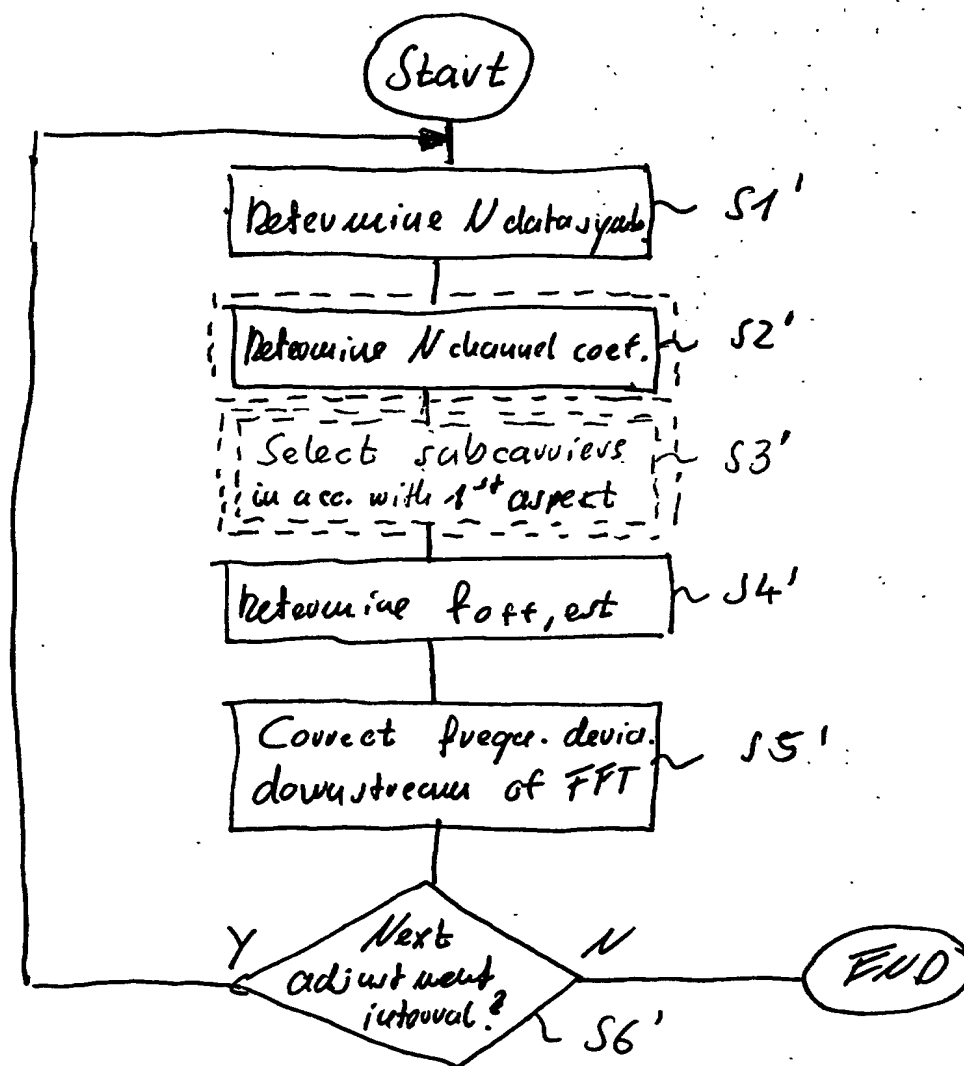 Start
Determine N datasymb.
S1'
Determine N channel coef.
S2'
Select subcarriers
in acc. with 1st aspect
S3'
Determine foff,est
S4'
Correct frequ. devia.
downstream of FFT
S5'
Next
adjustment
interval?
Y
N
END
S6'